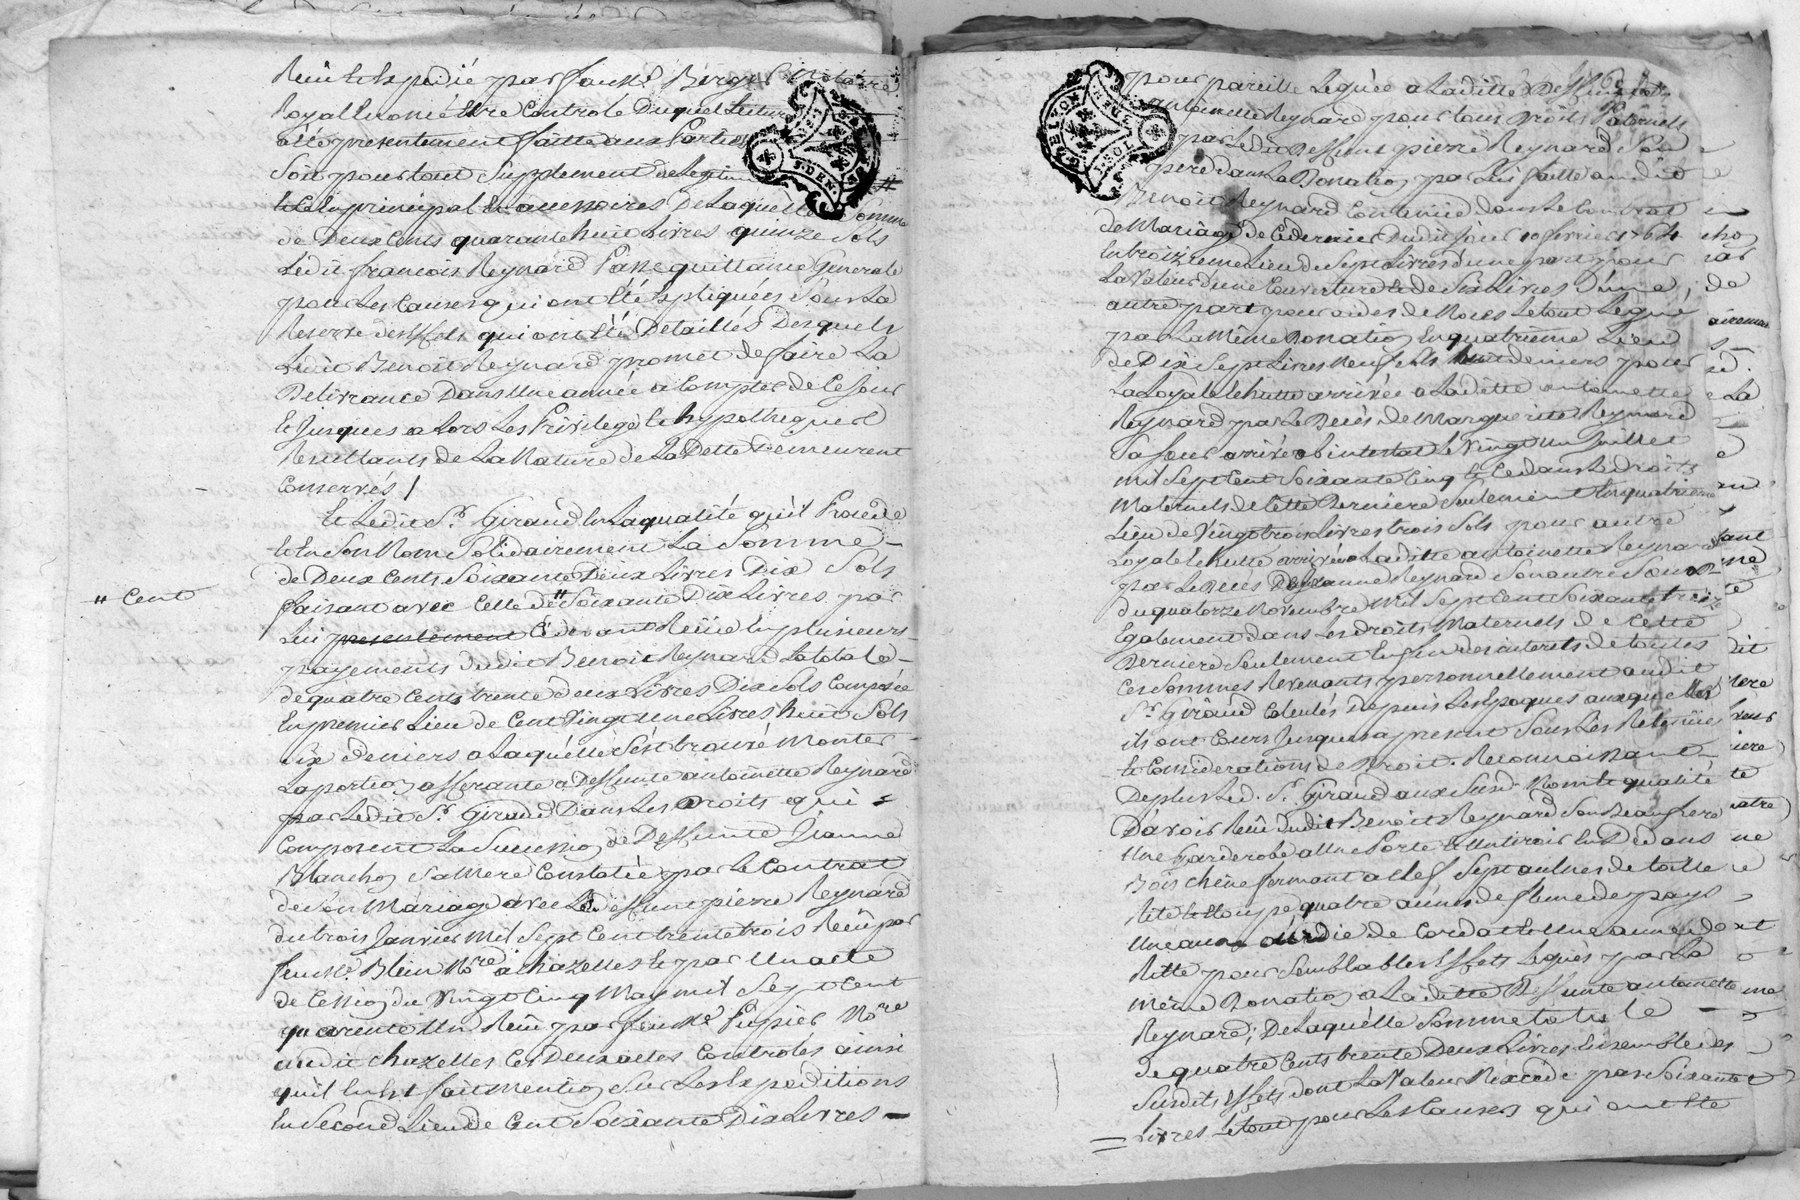 Reçu et Expedié par feu Me Berger Notaire
Royal Luy onié Etre Controlé Duquel Lecture
a été presentement faitte aux Parties
Soit pour tout Supplement de Legitime
tele En principal En accessoires De Laquelle Somme
de Deux Cents quarante huit Livres quinze Sols
Ledit françois Reynard Passe quittance Generale
pour Les Causes qui ont Eté Expliquées Sous La
Reserve des Effets qui ont Eté Detaillés Desquels
Ledit Benoit Reynard promet de faire La
Delivrance Dans Une année a Compter de Ce jour
Et Jusques a Lors Les Privilege Et hypotheques
Resultants de La Nature de La Dette Demeurent
Conservés /
Et Ledit Sr. Giraud En La qualité qu'il Procede
Et En Son Nom Solidairement La Somme
de Deux Cents Soixante Deux Livres Dix Sols
" Cent
faisant avec Celle de " Soixante Dix Livres par
Lui presentement Cidevant Reçüe En plusieurs
payements dudit Benoit Reynard La totale
de quatre Cents trente deux Livres Dix Sols Composée
En premier Lieu de Cent Vingt Une Livres huit Sols
Six deniers a Laquelle S'est trouvé Monter
La portion afferante a Deffunte antoinette Reynard
par Ledit Sr. Giraud Dans Les Droits qui
Composent La Succession de Deffunte Jeanne
Blanchon Sa Mere Constatée par Le Contrat
de Son Mariage avec Le Deffunt pierre Reynard
du trois Janvier Mil Sept Cent trente trois Reçu par
feu Me. Blein Nore a chazelles Et par Un acte
de Cession du Vingt Cinq May mil Sept Cent
quarente Un Reçu par feu Me Pupier Nore
audit chazelles Les Deux actes Controlés ainsi
qu'il En Est fait Mention Sur Les Expeditions
En Second Lieu de Cent Soixante Dix Livres
pour pareille Leguée a Laditte Deffunte
antoinette Reynard pour tous Droits Paternels
par Ledit Deffunt pierre Reynard Son
pere dans La Donation par Lui faitte audit
Benoit Reynard Contenüe dans Le Contrat
de Mariage de Ce dernier Dudit jour 10 fevrier 1764
En troizieme Lieu de Sept Livres d'une part pour
La Valeur d'une Couverture Et de Six Livres D'une
autre part pour aides de Noces Le tout Legué
par La Même Donation En quatrieme Lieu
de Dix Sept Livres Neuf Sols huit deniers pour
La Loyale Echutte arrivée a Laditte antoinette
Reynard par Le Decés de Marguerite Reynard
Sa Sœur arrivée ab intestat Le Vingt Un Juillet
mil Sept Cent Soixante Cinq Et Ce dans Les droits
Maternels de Cette Derniere Seulement En quatrieme
Lieu de Vingt trois Livres trois Sols pour autre
Loyale Echutte arrivée a Laditte antoinette Reynard
par Le Decés De Jeanne Reynard Son autre Sœur
du quatorze Novembre Mil Sept Cent Soixante treize
Egalement dans Les droits Maternels de Cette
Derniere Seulement Enfin des interets de toutes
Ces Sommes Revenants personnellement audit
Sr. Giraud Calculés Depuis Les Epoques auxquelles
ils ont Cours Jusques a present Sous Les Retenües
Et Considerations de Droit. Reconnoissant
De plus Led. Sr. Giraud aux Susd. Nom Et qualité
D'avoir Reçu dudit Benoit Reynard Son Beaufrere
Une Garderobe a Une Porte Et Un tiroir En Dedans
Bois chene fermant a Clef Sept aulnes de toille
Rite Et Etoupe quatre aunes de flene de pays
Une aune die de Cordat Et Une aune dont
Ritte pour Semblables Effets Legués par La
même Donation a Laditte Deffunte antoinette
Reynard; De Laquelle Somme totale
de quatre Cents trente Deux Livres Ensemble des
Susdits Effets dont La Valeur N'excede pas Soixante
Livres Le tout pour Les Causes qui ont Eté